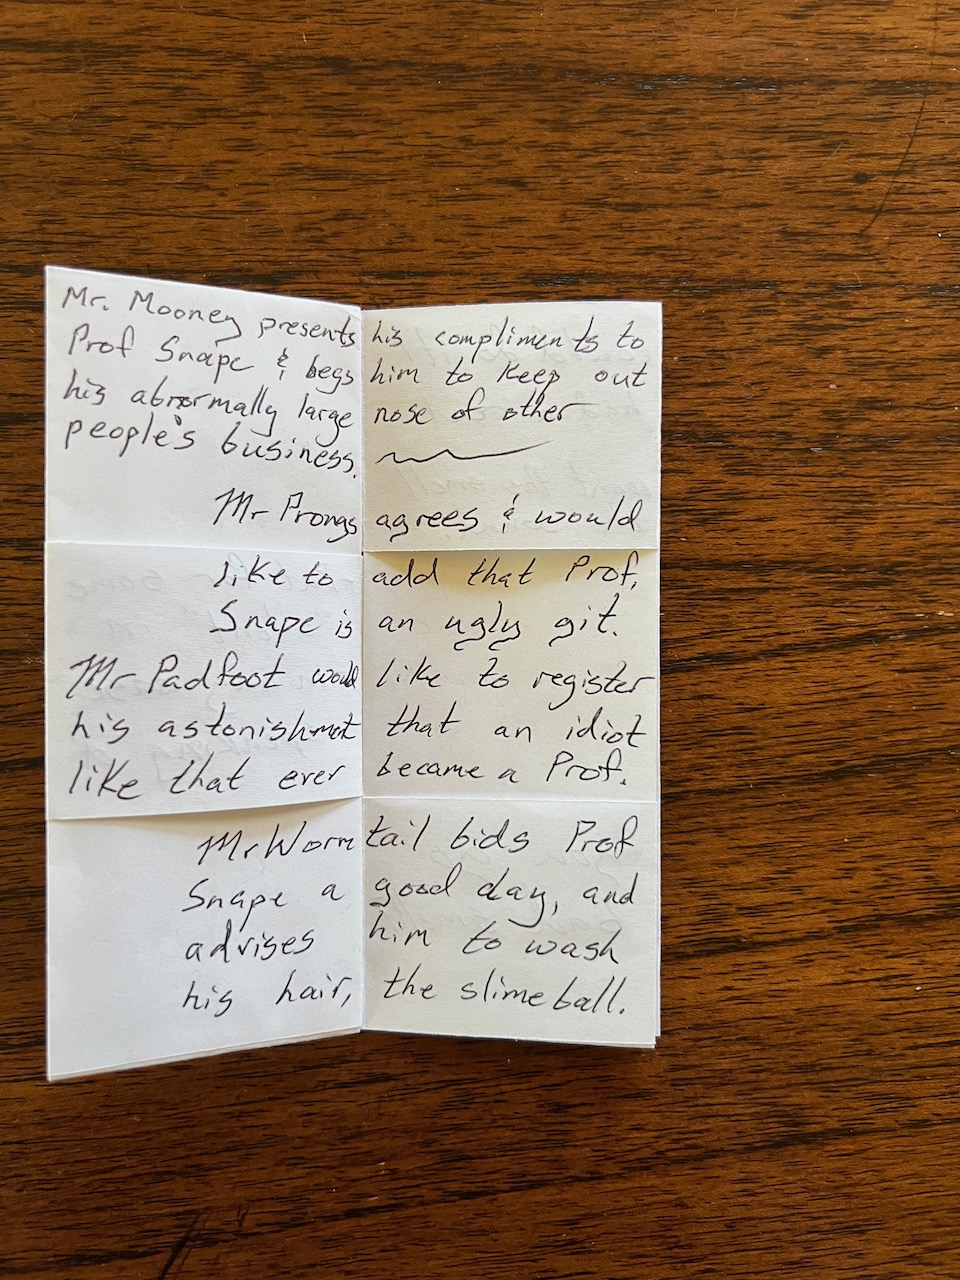 Mr. Mooney presents his compliments to
Prof Snape & begs him to keep out
his abnormally large nose of other
people's business.
Mr Prongs agrees & would
like to add that Prof,
Snape is an ugly git.
Mr Padfoot would like to register
his astonishment that an idiot
like that ever became a Prof.
Mr Wormtail bids Prof
Snape a good day, and
advises him to wash
his hair, the slimeball.